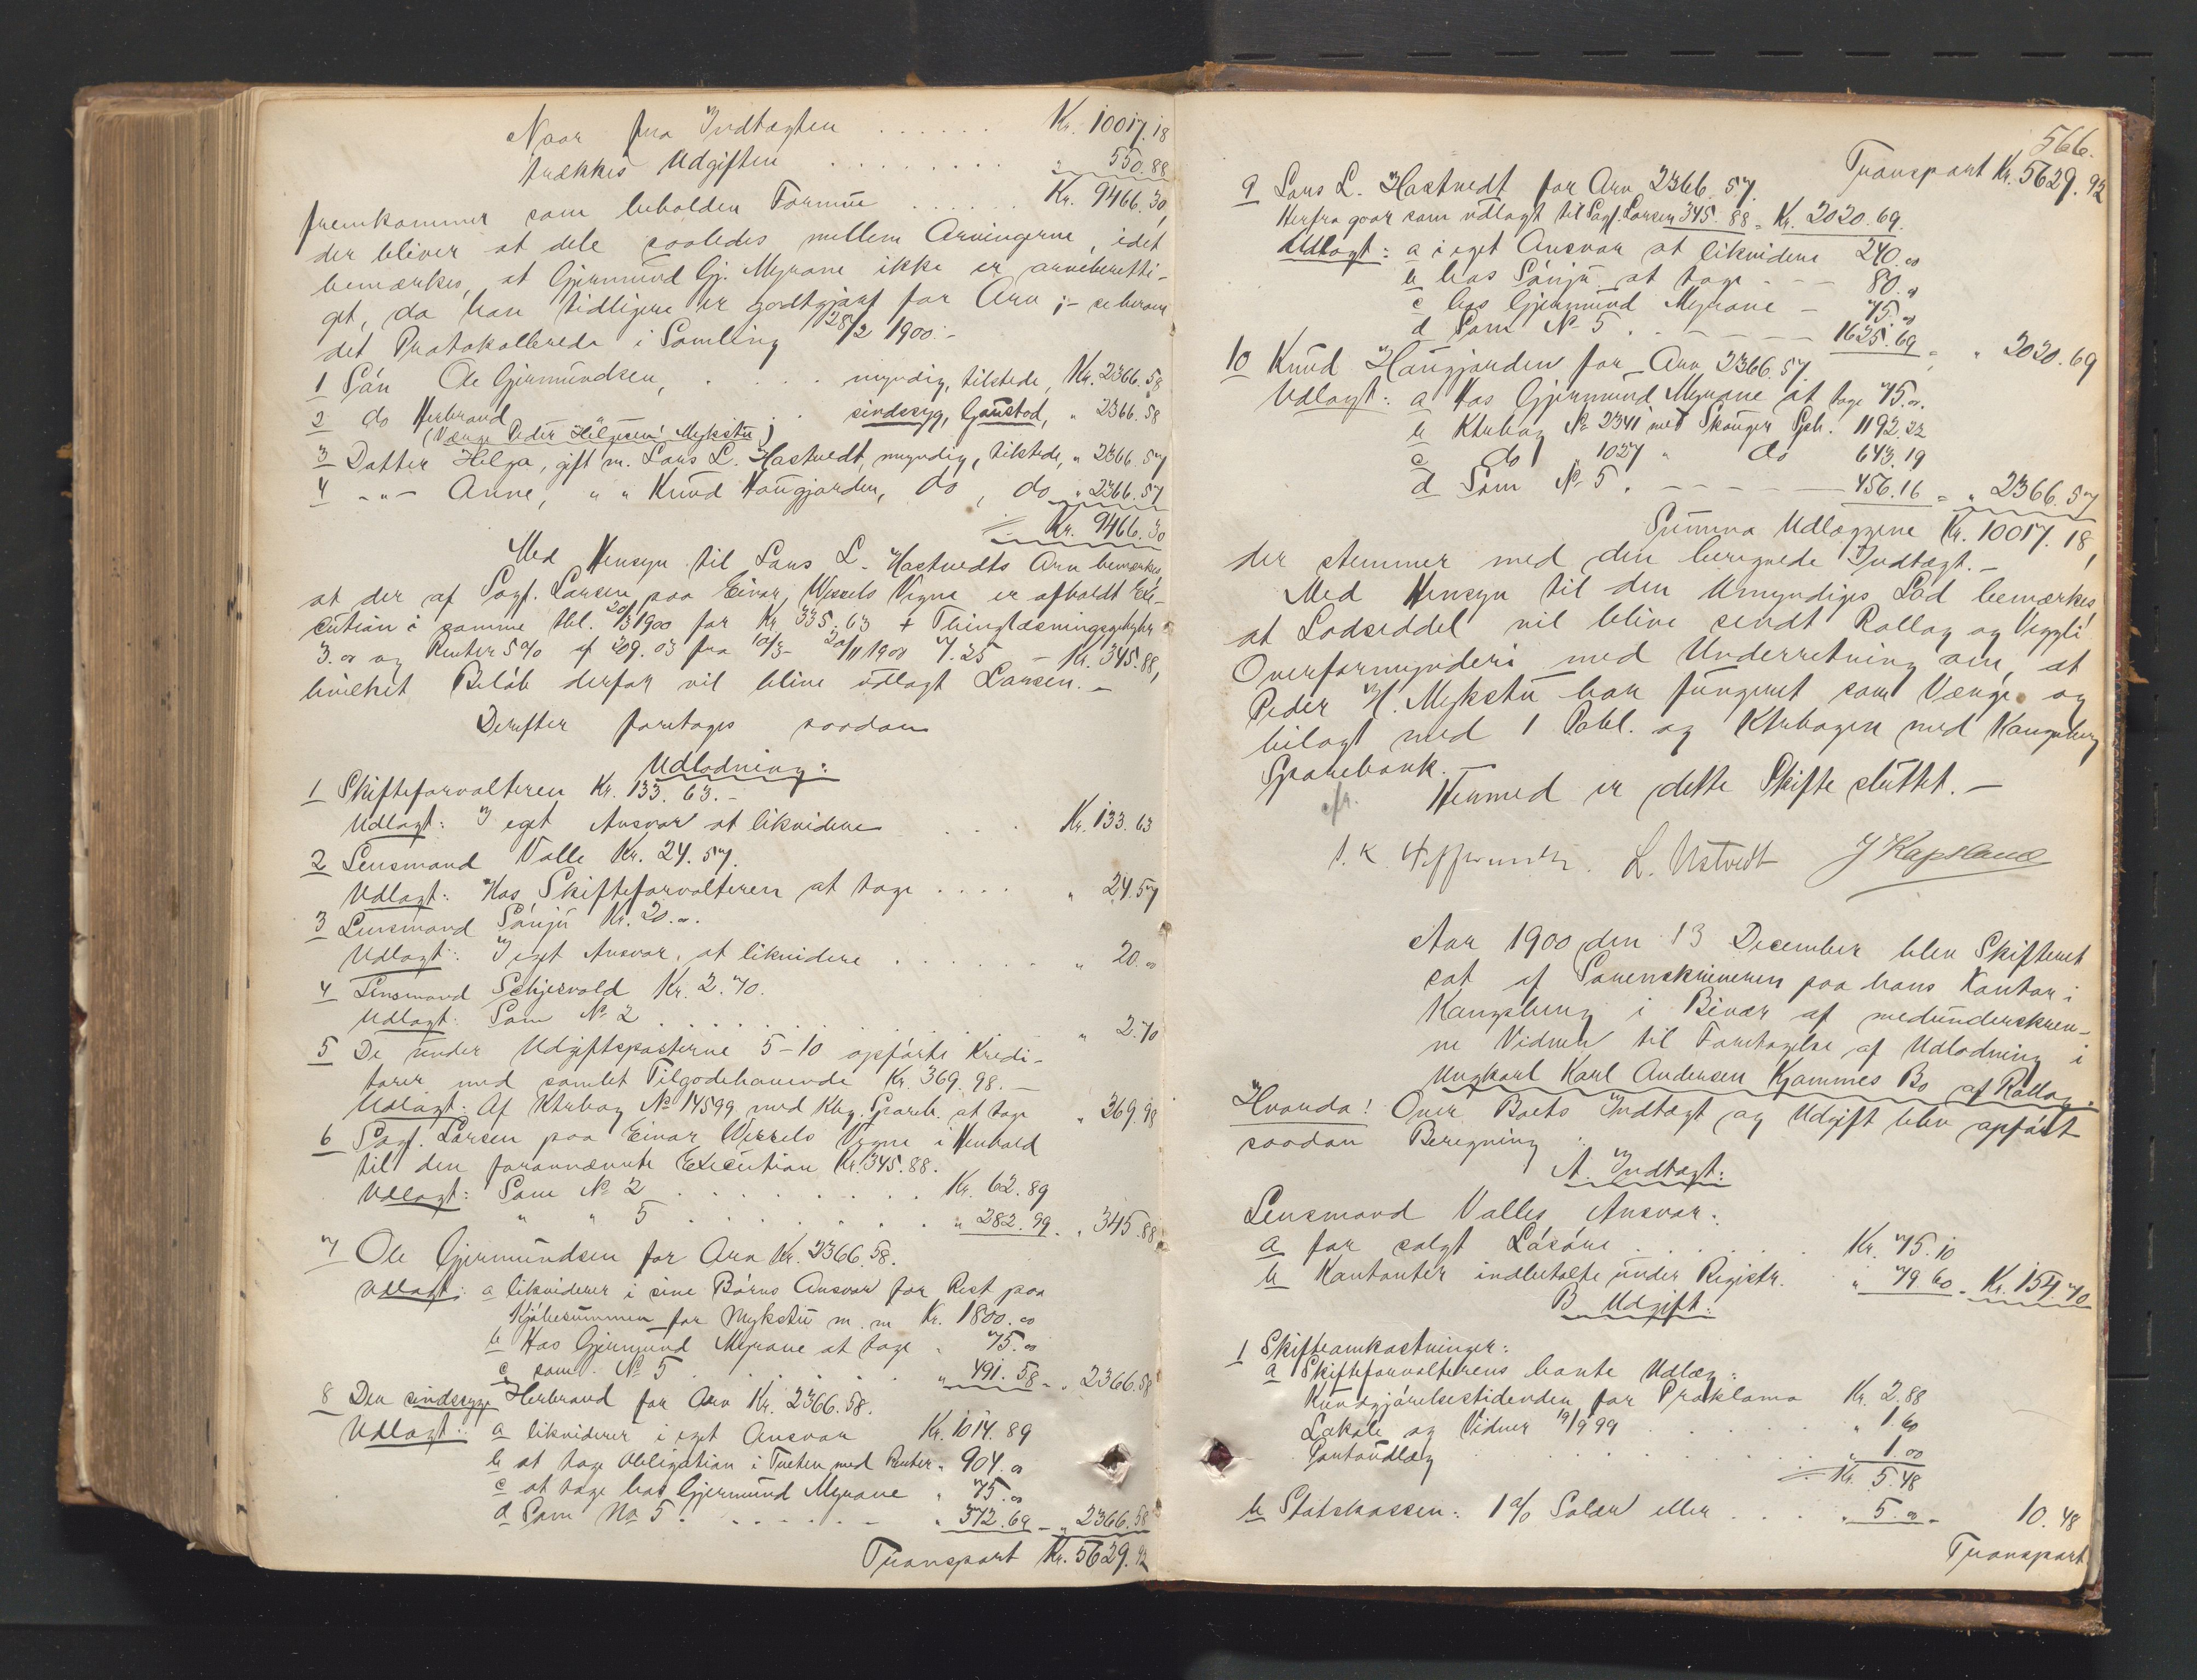 Naar fra Indtægten . . . . . . Kr. 10017.18
trækkes Udgiften . . . . . . . . . " 550.88
fremkommer som beholden Formue . . . . . . Kr. 9466.30,
der bliver at dele saaledes mellem Arvingerne, idet
bemærkes, at Gjermund Gj. Myrane ikke er arveberetti-
get, da han tidligere er godtgjort for Arv ;- se herom
det Protokollerede i Samling 28/2 1900.-
1 Søn Ole Gjermundsen, . . . . myndig, tilstede, Kr. 2366.58
2 do Herbrand . sindssyg, Gaustad, " 2366.58
(Værge Peder Helgesen Mykstu)
3 Datter Helga, gift m. Lars L. Hastvedt, myndig, tilstede, " 2366.57
4 -"- Anne, " " Knud Haugjorden, do, do " 2366.57
= Kr. 9466.30
Med Hensyn til Lars L. Hastvedts Arv bemærkes,
at der af Sagf. Larsen paa Einar Wessels Vegne er afholdt Exe-
cution i samme tbl. 20/3 1900 for Kr. 335.63 + Thinglæsningsgebyhr
3.00 og Renter 5% af 209.03 fra 10/3 - 20/11 1900 7.25 - Kr. 345.88,
hvilket Beløb derfor vil blive udlagt Larsen. -
Derefter foretages saadan
Udlodning:
1 Skifteforvalteren Kr. 133.63.-
Udlagt: I eget Ansvar at likvidere . . . Kr. 133.63
2 Lensmand Valle Kr. 24.57.
Udlagt: Hos Skifteforvalteren at tage . . . . " 24.57
3 Lensmand Sønju Kr. 20.00.
Udlagt: I eget Ansvar, at likvidere . . . . . . . " 20.00
4 Lensmand Schjervold Kr. 2.70.
Udlagt: Som № 2 . . . . . . . . . . . " 2.70
5 De under Udgiftsposterne 5-10 opførte Kredi-
torer med samlet Tilgodehavende Kr. 369.98. -
Udlagt: Af Ktrbog № 14599 med Kbg. Spareb. at tage " 369.98
6 Sagf. Larsen paa Einar Wessels Vegne i Henhold
til den forannævnte Execution Kr. 345.88.
Udlagt: Som № 2 . . . . . . . . . Kr. 62.89
" " 5 . . . . . . . . " 282.99 . " 345.88
7 Ole Gjermundsen for Arv Kr. 2366.58.
Udlagt: a likviderer i sine Børns Ansvar for Rest paa
Kjøbesummen for Mykstu m. m Kr. 1800.00
b Hos Gjermund Myrane at tage " 75.00
c som № 5 . . . . . . " 491.58 - " 2366.58
8 Den sindssyge Herbrand for Arv Kr. 2366.58.
Udlagt: a likviderer i eget Ansvar Kr. 1014.89
b at tage Obligation i Tveten med Renter " 904.00
c at tage hos Gjermund Myrane " 75.00
d Som № 5 . . . . . . - " 372.69 - " 2366.58
Transport Kr. 5629.92
566.
Transport Kr. 5629.92
9 Lars L. Hastvedt for Arv 2366.57.
Herfra gaar som udlagt til Sagf. Larsen 345.88 = Kr. 2020.69.
Udlagt: a i eget Ansvar at likvidere 240.00
b hos Sønju at tage - - - 80.00
c hos Gjermund Myrane - 75.00
d Som № 5 . - - - - - 1625.69 = " 2020.69
10 Knud Haugjorden for Arv 2366.57
Udlagt: a Hos Gjermund Myrane at tage 75.00.
b Ktrbog № 2341 med Skauger Spb. 1192.22
c do " 1027 " do 643.19
d Som № 5 . - - - - - 456.16 = " 2366.57
Summa Udlæggene Kr. 10017.18,
der stemmer med den beregnede Indtægt. -
Med Hensyn til den Umyndiges Lod bemærkes,
at Lodseddel vil blive sendt Rollag og Veggli
Overformynderi med Underretning om, at
Peder H. Mykstu har fungeret som Værge og
bilagt med 1 Pobl. og Ktrbogen med Kongsberg
Sparebank. -
Hermed er dette Skifte sluttet. -
cfr.
L. Ustvedt J Kapsland
Aar 1900 den 13 December blev Skifteret
sat af Sorenskriveren paa hans Kontor i
Kongsberg i Bivær af medunderskrev-
ne Vidner til Foretagelse af Udlodning i
Ungkarl Karl Andersen Kjommes Bo af Rollag.
Hvorda! Over Boets Indtægt og Udgift blev opført
saadan Beregning:
A. Indtægt:
Lensmand Valles Ansvar:
a for solgt Løsøre . . . . . . Kr. 75.10
b Kontanter indbetalte under Registr. " 79 60 = Kr. 154.70
B Udgift:
1 Skifteomkostninger:
a Skifteforvalterens havte Udlæg:
Kundgjørelsestidenden for Proklama Kr. 2.88
Lokale og Vidner 19/9 99 . . . . . . " 1.60
Portoudlæg . . . . . . . " 1 00
= Kr. 5.48
b Statskassen: 1% Salær eller . . . . " 5.00 - 10.48
Transport